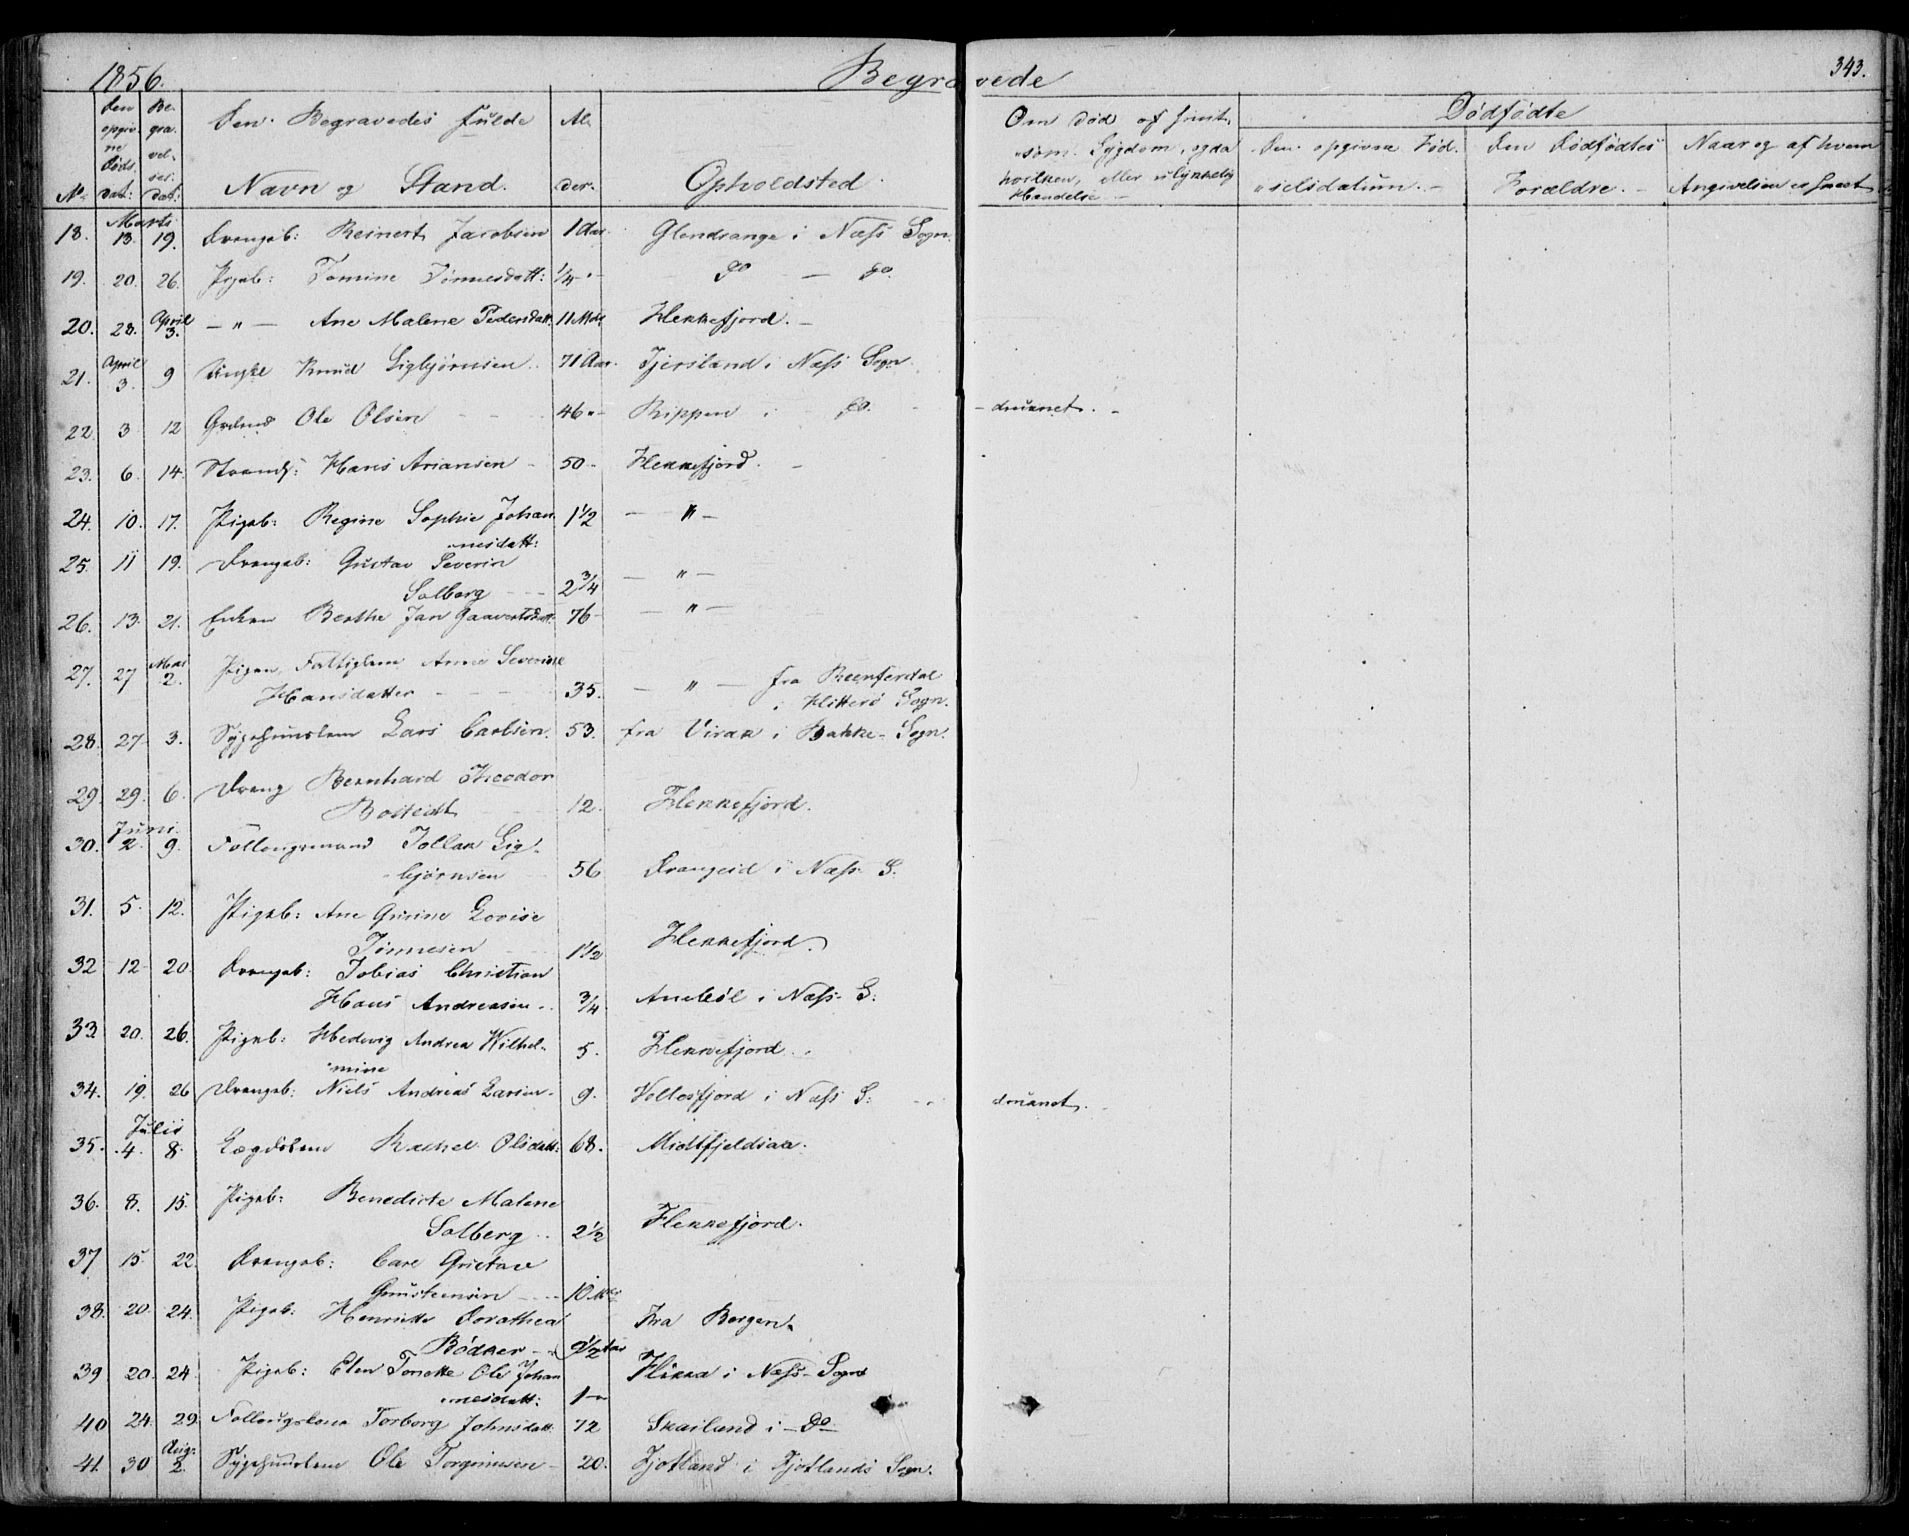 1856. Begravede 343.
No Den opgivne Døds dat: Begravelses dat: Den Begravedes fulde Navn og Stand. Alder. Opholdsted Om død af smitsom Sygdom, og da hvilken, eller ulykkelig Hændelse
Dødfødte
Den opgivne Fødselsdatum. Den Dødfødtes Forældre. Naar og af hvem Angivelsen er skeet
Marts
18. 13. 19. Drengeb: Reinert Jacobsen 1 Aar. Glendrange i Næss Sogn.
19. 20. 26. Pigeb: Tomine Tønnesdatt: 1/4 - " - do — do.
20. 28. April 3. — " — Ane Malene Pedersdatt. 11 Mdr Flekkefjord.
21. April 3. 9 Knud Sigbjørnsen 71 Aar. Fjersland i Næss Sogn
22. 3 12 Ole Olsen 46 " - Rippen i do. druknet.
23. 6. 14. Strands: Hans Ariansen 50 - Flekkefjord.
24. 10. 17. Pigeb: Regine Sophie Johan 1 1/2 — " —
nesdatt:
25. 11 19. Drengeb: Gustav Severin
Solberg 2 3/4 — " —
26. 13. 21. Enken Berthe Jan Gaavertsdatt 76 - — " —
27. 27 Mai 2. Pigen, Fattiglem Anne Severine
Hansdatter 35. — " — fra Reenferdal
i Hitterø Sogn.
28. 27 3. Sygehuuslem Lars Carlsen. 53. fra Virak i Bakke - Sogn.
29. 29. 6. Dreng Bernhard Theodor
12. Flekkefjord.
Juni.
30. 2. 9. Follougsmand Tollak Sig
bjørnsen 56 Drangeid i Næss S.
31. 5. 12. Pigeb: Ane Gurine Lovise
Tønnesen 1 1/2 Flekkefjord.
32 12 20. Drengeb: Tobias Christian
Hans Andreasen 3/4 Anabeøl i Næss S:
33. 20. 26. Pigeb: Hedevig Andrea Wilhel
mine 5. Flekkefjord.
34. 19. 26 Drengeb: Niels Andreas Larsen 9. Vollesfjord i Næss S: druknet.
Julii
35. 4. 8. Lægdslem Rachel Olsdatt: 68. Midtfjeldsaa.
36. 8. 15. Pigeb: Benedicte Malene
Solberg 2 1/2 Flekkefjord.
37 15 22. Drengeb: Carl Gustav
10 Mdr
38. 20. 24. Pigeb: Henriette Dorathea Fra Bergen.
Bødker 9 1/2 Aar
39 20. 24. Pigeb: Elen Tonette Ole Johan Flikka i Næss - Sogn
nesdatt: 1 - "
40 24. 29. Follougskone Torborg Johnsdatt. 72 Skailand i - do -
41. 30 Aug: 2. Sygehuuslem Ole Torgimsen 20. Fjotland i Fjotlands Sogn.